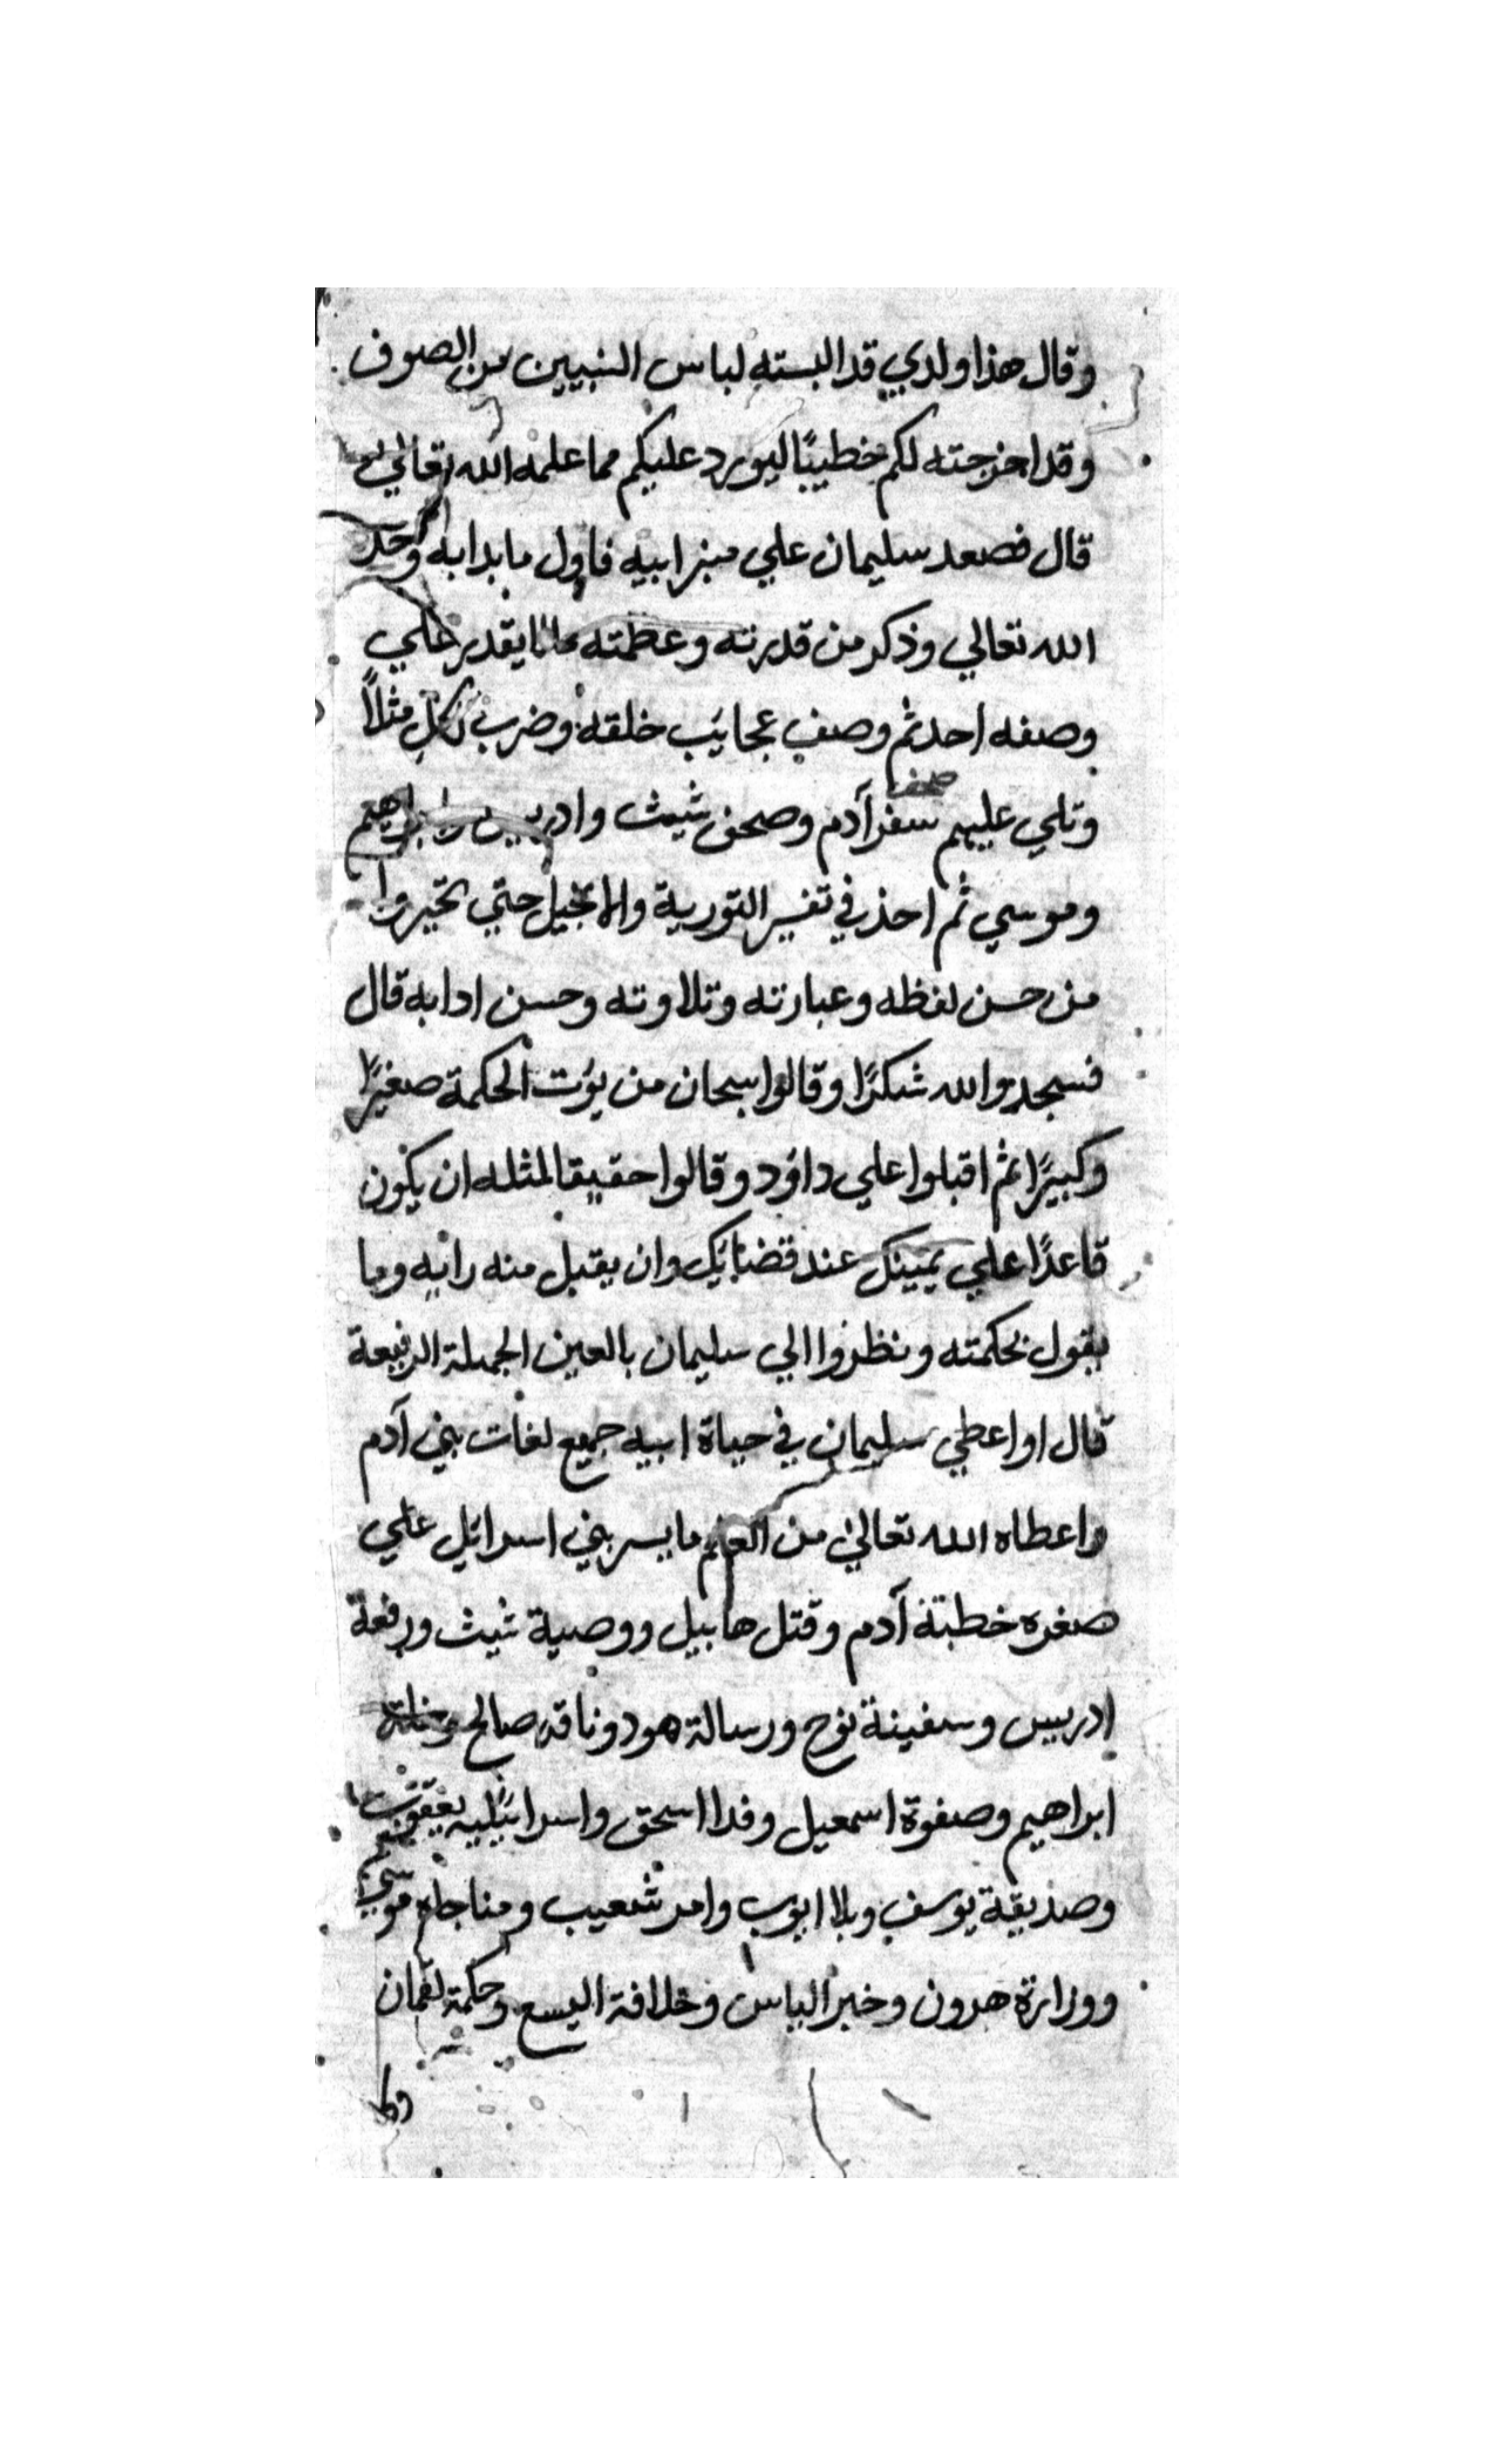 وقال هذا ولدي قد البسته لباس النبيين من الصوف
وقد اخرجته لكم خطيبًا ليورد عليكم مما علمه الله تعالي
قال فصعد سليمان علي منبر ابيه فاول ما بدا به وحد
الله تعالي وذكر من قدرته وعظمته ما لا يقدر علي
وصفه احد ثم وصف عجايب خلقه وضرب لكل مثلاً
وتلي عليهم سفر آدم وصحف شيث وادريس وابراهيم
وموسي ثم اخذ في تفسير التورية والانجيل حتي تحيروا
من حسن لفظه وعبارته وتلاوته وحسن ادابه قال
فسجدوا لله شكرًا وقالوا سبحان من يؤت الحكمة صغيرًا
وكبيرًا ثم اقبلوا علي داؤد وقالوا حقيقا لمثله ان يكون
قاعدًا علي يمينك عند قضائك وان يقبل منه رايه وما
يقول بحكمته ونظروا الي سليمان بالعين الجميلة الرفيعة
قال او اعطي سليمان في حياة ابيه جميع لغات بني آدم
واعطاه الله تعالي من العلم ما يسر بني اسرائل علي
صغره خطبة آدم وقتل هابيل ووصية شيث ورفعة
ادريس وسفينة نوح ورسالة هود وناقة صالح
ابراهيم وصفوة اسمعيل وفدا اسحق واسرائيليه يعقوب
وصديقة يوسف وبلا ايوب وامر شعيب ومناجاه موسي
ووزارة هرون وخبر الياس وخلافة اليسع وحكمة لقمان